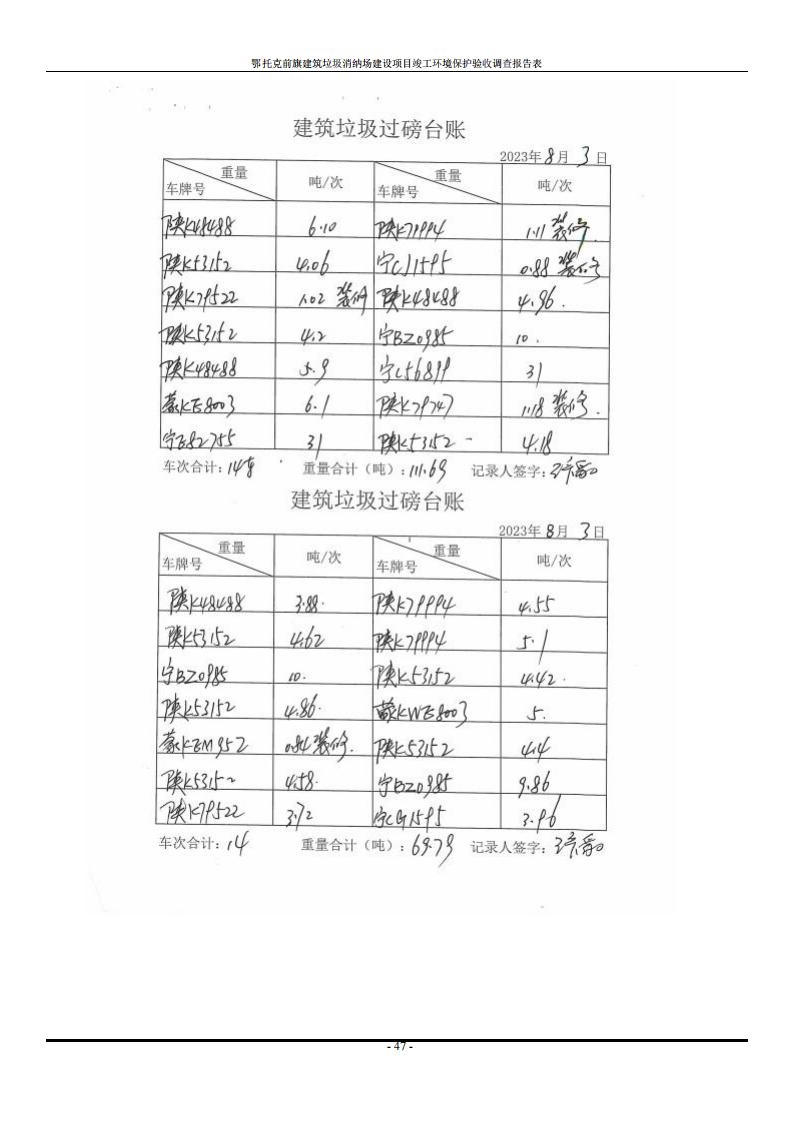 鄂托克前旗建筑垃圾消纳场建设项目竣工环境保护验收调查报告表
建筑垃圾过磅台账
2023年8月3日
重量 车牌号 吨/次 重量 车牌号 吨/次
陕K48488 6.10 陕K79994 1.11 装修
陕K53152 4.06 宁CJ1595 0.88 装修
陕K79522 1.02 装修 陕K48488 4.96
陕K53152 4.2 宁BZ0985 10
陕K48488 5.9 宁C56899 31
蒙KE8003 6.1 陕K79747 1.18 装修
宁E82755 31 陕K53152 4.18
车次合计:14车 重量合计(吨):111.69 记录人签字:
建筑垃圾过磅台账
2023年8月3日
重量 车牌号 吨/次 重量 车牌号 吨/次
陕K48488 3.88 陕K79994 4.55
陕K53152 4.62 陕K79994 5.1
宁BZ0985 10. 陕K53152 4.42
陕K53152 4.86 蒙KWE8003 5.
蒙KEM952 0.84 装修 陕K53152 4.4
陕K53152 4.58 宁BZ0985 9.86
陕K79522 3.72 宁CG1595 3.96
车次合计:14 重量合计(吨):69.79 记录人签字:
- 47 -